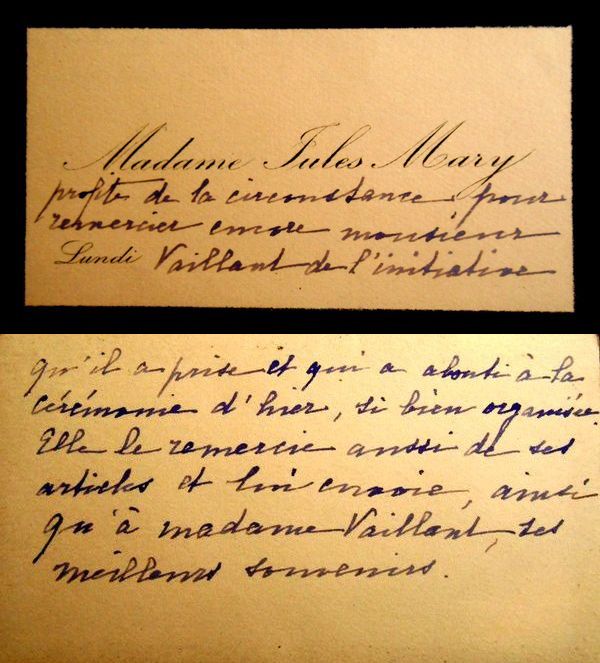 Madame Jules Mary
profite de la circonstance pour
remercier encore monsieur
Lundi Vaillant de l'initiative
qu'il a prise et qui a abouti à la
cérémonie d'hier, si bien organisée.
Elle le remercie aussi de ses
articles et lui envoie, ainsi
qu'à madame Vaillant, ses
meilleurs souvenirs.